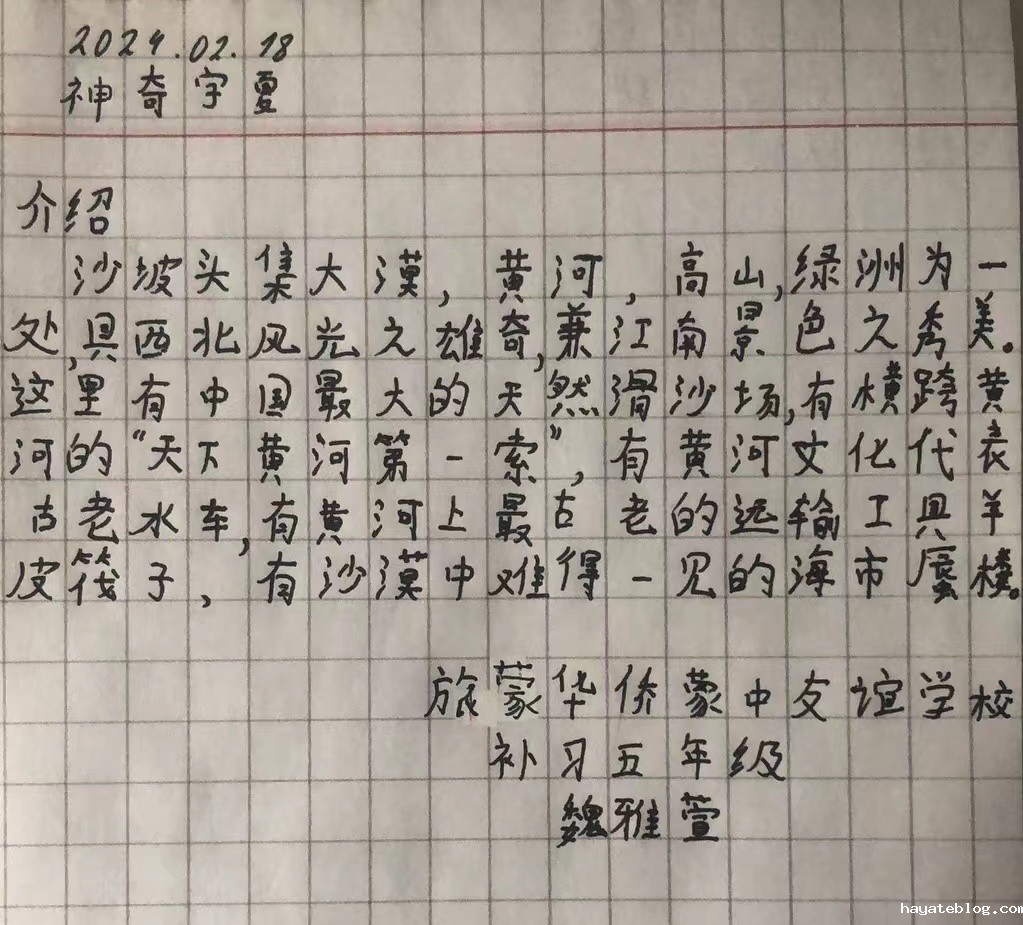 2024.02.18
神奇宁夏
介绍
沙坡头集大漠,黄河,高山,绿洲为一
处,具西北风光之雄奇,兼江南景色之秀美。
这里有中国最大的天然滑沙场,有横跨黄
河的“天下黄河第一索”,有黄河文化代表
古老水车,有黄河上最古老的运输工具羊
皮筏子,有沙漠中难得一见的海市蜃楼。
旅蒙华侨蒙中友谊学校
补习五年级
魏雅萱
hayateblog.com